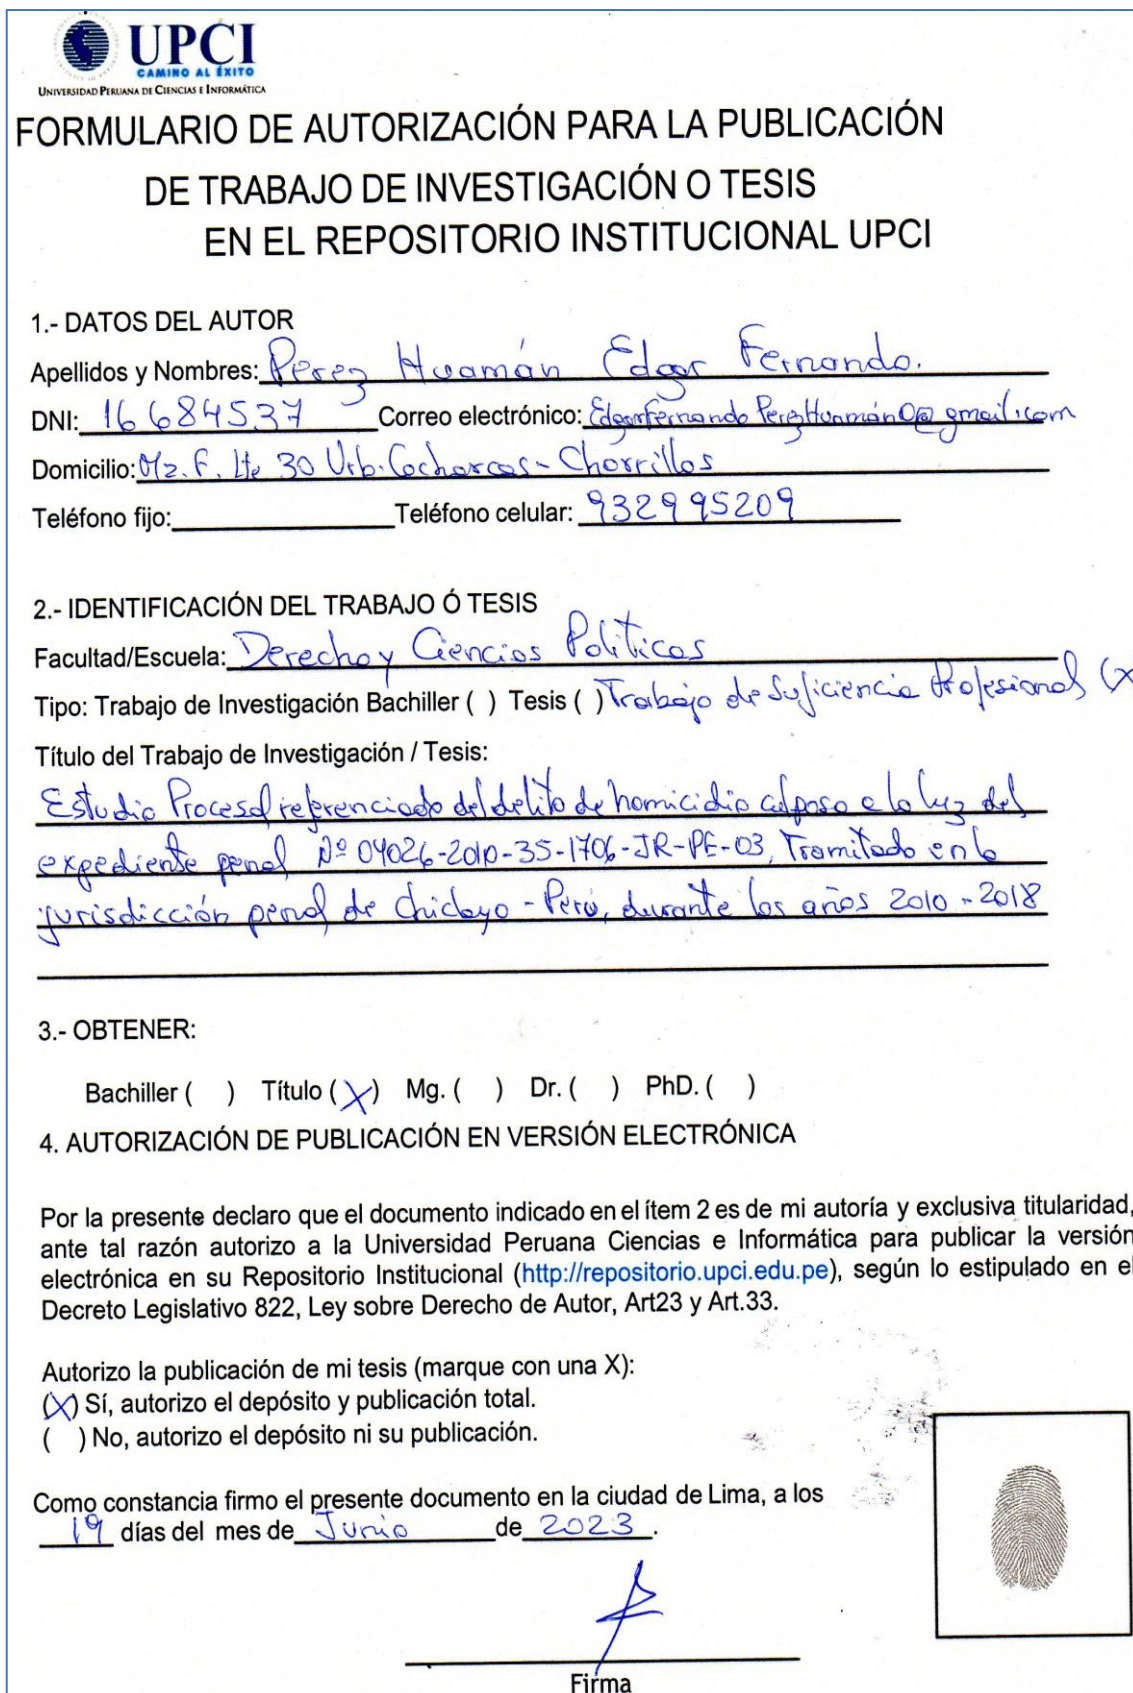 UPCI
CAMINO AL ÉXITO
UNIVERSIDAD PERUANA DE CIENCIAS E INFORMÁTICA
FORMULARIO DE AUTORIZACIÓN PARA LA PUBLICACIÓN
DE TRABAJO DE INVESTIGACIÓN O TESIS
EN EL REPOSITORIO INSTITUCIONAL UPCI
1.- DATOS DEL AUTOR
Apellidos y Nombres: Perez Huamán Edgar Fernando.
DNI: 16684537 Correo electrónico: EdgarFernandoPerezHuamán0@gmail.com
Domicilio: Mz. F. Lte 30 Urb. Cocharcas - Chorrillos
Teléfono fijo: Teléfono celular: 932995209
2.- IDENTIFICACIÓN DEL TRABAJO Ó TESIS
Facultad/Escuela: Derecho y Ciencias Políticas
Tipo: Trabajo de Investigación Bachiller ( ) Tesis ( ) Trabajo de Suficiencia Profesional (X
Título del Trabajo de Investigación / Tesis:
Estudio Procesal referenciado del delito de homicidio culposo a la luz del
expediente penal Nº 04026-2010-35-1706-JR-PE-03, Tramitado en la
jurisdicción penal de Chiclayo - Perú, durante los años 2010 - 2018
3.- OBTENER:
Bachiller ( ) Título (X) Mg. ( ) Dr. ( ) PhD. ( )
4. AUTORIZACIÓN DE PUBLICACIÓN EN VERSIÓN ELECTRÓNICA
Por la presente declaro que el documento indicado en el ítem 2 es de mi autoría y exclusiva titularidad,
ante tal razón autorizo a la Universidad Peruana Ciencias e Informática para publicar la versión
electrónica en su Repositorio Institucional (http://repositorio.upci.edu.pe), según lo estipulado en el
Decreto Legislativo 822, Ley sobre Derecho de Autor, Art23 y Art.33.
Autorizo la publicación de mi tesis (marque con una X):
(X) Sí, autorizo el depósito y publicación total.
( ) No, autorizo el depósito ni su publicación.
Como constancia firmo el presente documento en la ciudad de Lima, a los
19 días del mes de Junio de 2023.
Firma